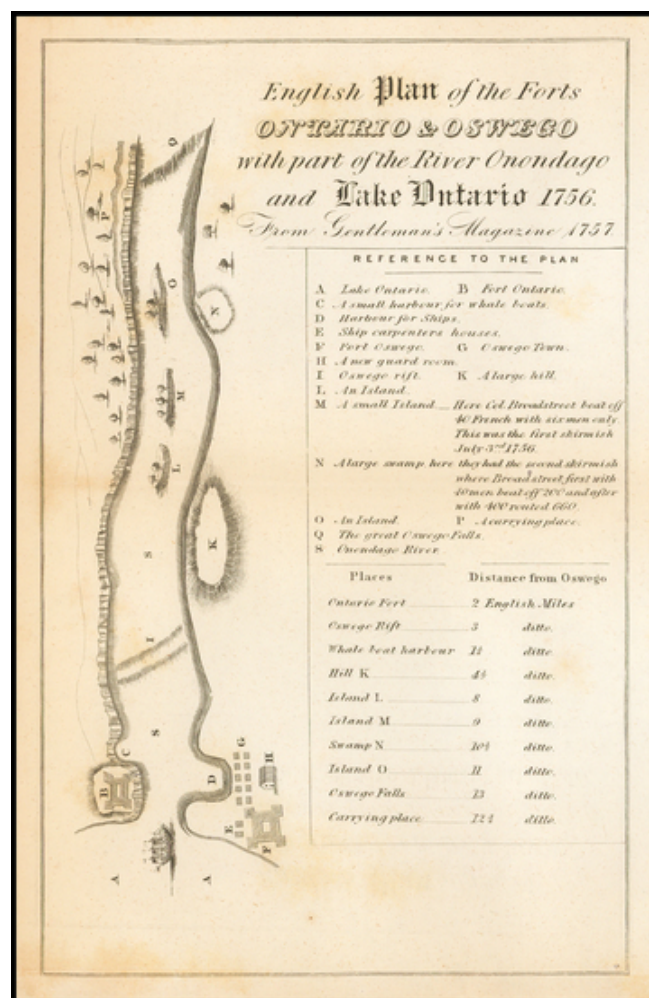 English Plan of the Forts
ONTARIO & OSWEGO
with part of the River Onondago
and Lake Ontario 1756.
From Gentleman's Magazine 1757.
REFERENCE TO THE PLAN
A Lake Ontario. B Fort Ontario.
C A small harbour for whale boats.
D Harbour for Ships.
E Ship carpenters houses.
F Fort Oswego. G Oswego Town.
H A new guard room.
I Oswego rift. K A large hill.
L An Island.
M A small Island Here Col. Broadstreet beat off
40 French with six men only.
This was the first skirmish
July 3rd 1756.
N A large swamp here they had the second skirmish
where Broadstreet first with
40 men beat off 200 and after
with 400 routed 660.
O An Island. P A carrying place.
Q The great Oswego Falls.
S Onondago River.
Places Distance from Oswego
Ontario Fort 2 English Miles
Oswego Rift 3 ditto.
Whale boat harbour ditto.
Hill K ditto.
Island L 8 ditto.
Island M 9 ditto.
Swamp N ditto.
Island O 11 ditto.
Oswego Falls 13 ditto.
Carrying place ditto.
Q
P
O
N
M
L
K
S
I
S
C
B
D
G
H
E
F
A
A